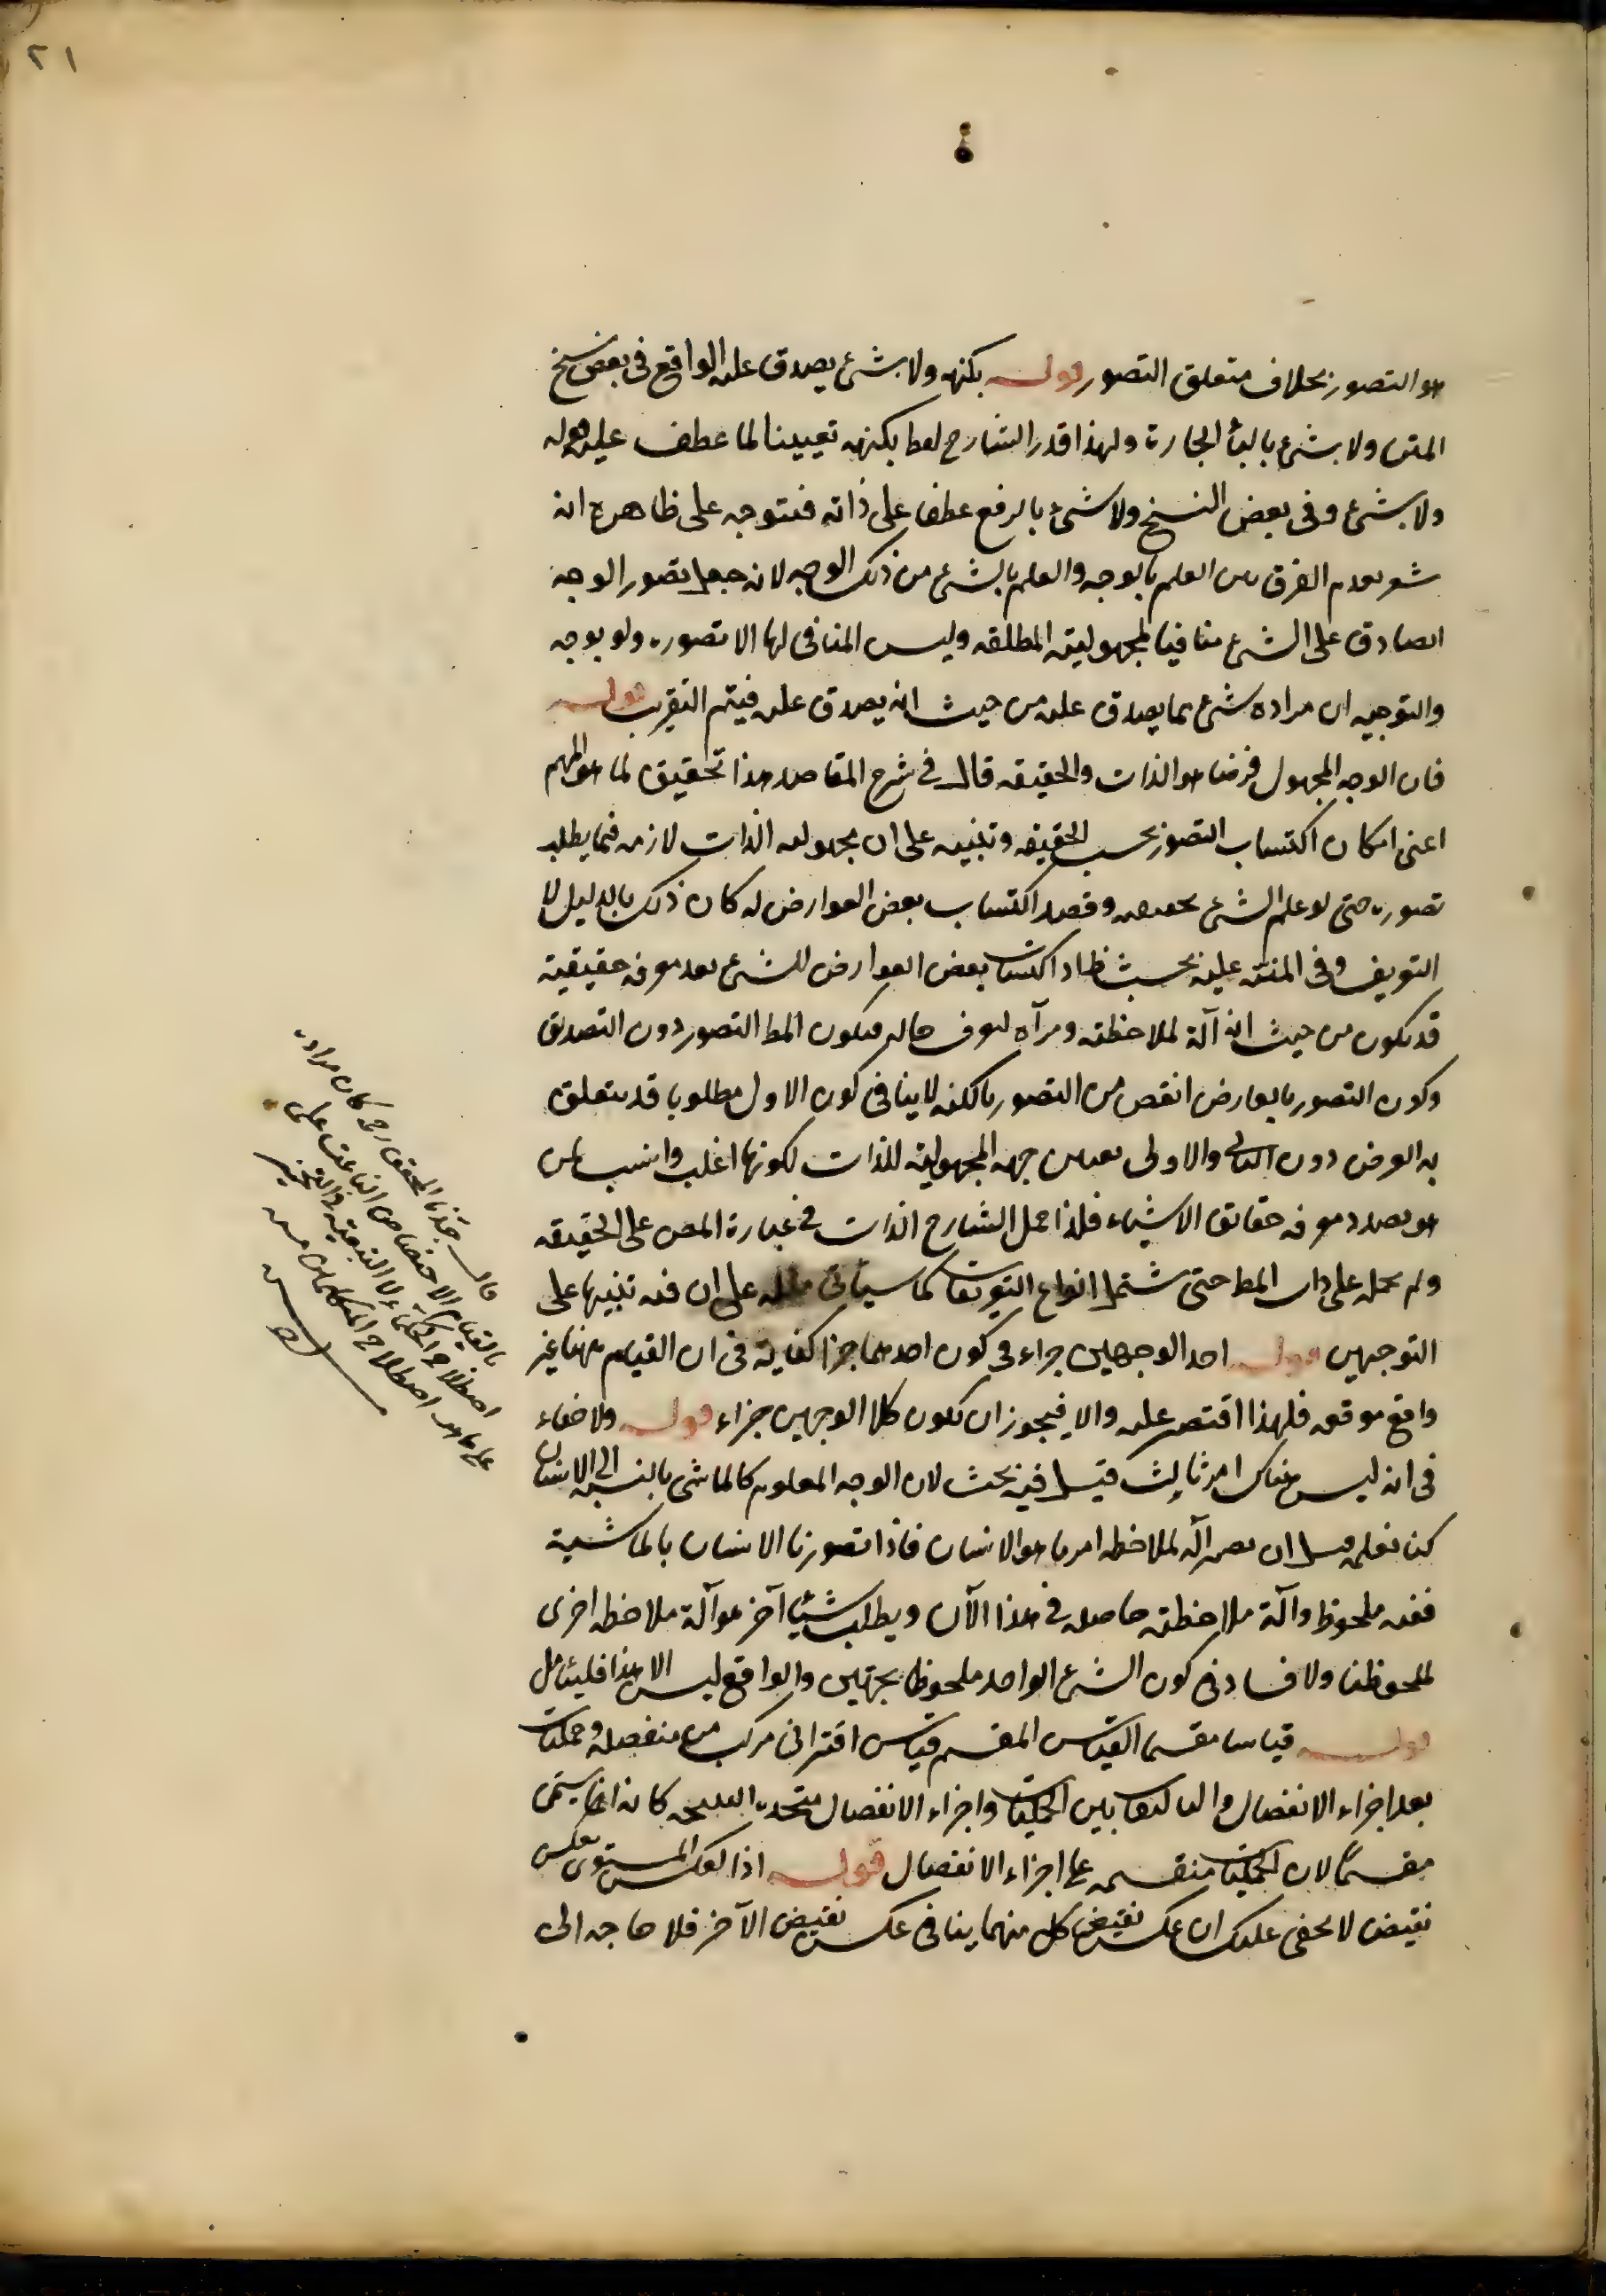 ٢١
هو التصور بخلاف متعلق التصور قوله بكنهه ولا بشئ يصدق عليه الواقع فى بعض نسخ
المتن ولا بشئ بالباء الجارة ولهذا قدر الشارح لفظ بكنهه تعيينا لما عطف عليه قوله
ولا بشئ وفى بعض النسخ ولا شئ بالرفع عطف على ذاته فتوجه على ظاهره انه
يشعر بعدم الفرق بين العلم بالوجه والعلم بالشئ من ذلك الوجه لانه جعل تصور الوجه
الصادق على الشئ منافيا لمجهوليته المطلقه وليس المنافى لها الا تصوره ولو بوجه
والتوجيه ان مراده شئ مما يصدق عليه من حيث انه يصدق عليه فيتم التقريب قوله
فان الوجه المجهول فرضا هو الذات والحقيقه قال فى شرح المقاصد هذا تحقيق لما هو المهم
اعنى امكان اكتساب التصور بحسب الحقيقه وتنبيه على ان مجهوليه الذات لازمه فيما يطلب
تصوره حتى لو علم الشئ بحقيقته وقصد اكتساب بعض العوارض له كان ذلك بالدليل لا
التعريف وفى المنتفى عليه بحث ظاهر اذ اكتساب بعض العوارض للشئ بعد معرفه حقيقته
قد يكون من حيث انه آلة لملاحظته ومرآه لتعرف حاله فيكون المط التصور دون التصديق
وكون التصور بالعارض انقص من التصور بالكنه لا ينافى كون الاول مطلوبا قد يتعلق
به الغرض دون الثانى والاولى تعيين جهه المجهولية للذات لكونها اغلب وانسب بمن
هو بصدد معرفه حقائق الاشياء فلذا حمل الشارح الذات فى عبارة المص على الحقيقه
ولم يحمل على ذات المط حتى يشتمل انواع التعريفات كما سيأتى على ان فيه تنبيها على
التوجيهين قوله احد الوجهين جزاء فى كون احدهما جزاء كفاية فى ان القيام ههنا غير
واقع موقعه فلهذا اقتصر عليه والا فيجوز ان يكون كلا الوجهين جزاء قوله ولا خفاء
فى انه ليس هناك امر ثالث قيل فيه بحث لان الوجه المعلوم كالماشى بالنسبة الى الانسان
كنا نعلمه قبل ان يصير آلة لملاحظه امر ما هو الانسان فاذا تصورنا الانسان بالماشية
ففيه ملحوظ وآلة ملاحظته حاصله فى هذا الآن ويطلب شيئا آخر هو آلة ملاحظه اخرى
لملحوظنا ولا فساد فى كون الشئ الواحد ملحوظا بجهتين والواقع ليس الا هذا فليتامل
قوله قياسا مقسما القياس المقسم قياس اقترانى مركب من منفصله وحمليات
بعدد اجزاء الانفصال والتأليفات بين الحمليات واجزاء الانفصال متحدة النتيجه كانه انما يسمى
مقسما لان الحمليات منقسمه على اجزاء الانفصال قوله اذا لعكس المستوى بعكس
نقيض لا يخفى عليك ان عكس نقيض كل منهما ينافى عكس نقيض الآخر فلا حاجه الى
قال جدنا المحقق ره كان مراده
بالقيام الاختصاص الناعت على
اصطلاح الحكماء لا التبعية فى التحيز
على ما هو اصطلاح المتكلمين